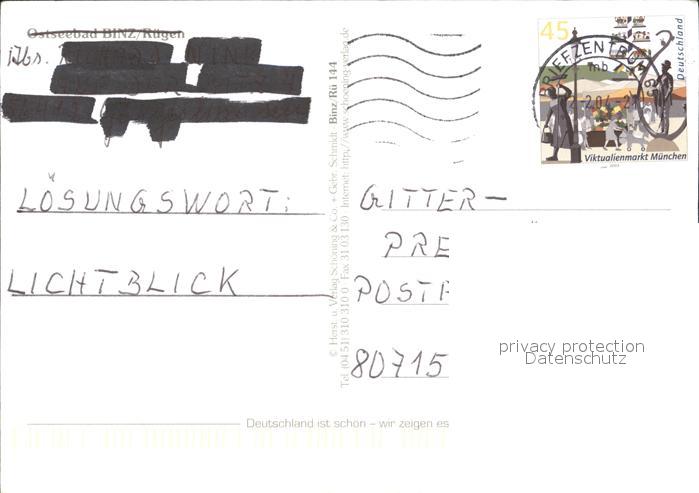 Ostseebad BINZ/Rügen
Abs.
LÖSUNGSWORT:
LICHTBLICK
© Herst. u. Verlag Schöning & Co. + Gebr. Schmidt · Binz/Rü 144
Tel. (04 51) 310 310 0 Fax 31 03 130 · Internet: http://www.schoening-verlag.de
45
Deutschland
BRIEFZENTRUM
Viktualienmarkt München
GITTER-
PRE
POST
80715
privacy protection
Datenschutz
Deutschland ist schön – wir zeigen es